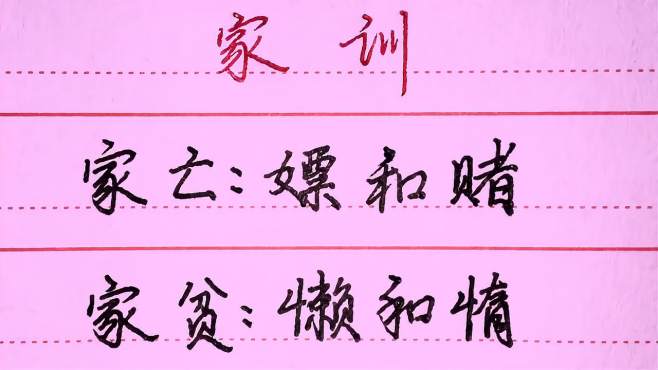 家训
家亡:嫖和赌
家贫:懒和惰